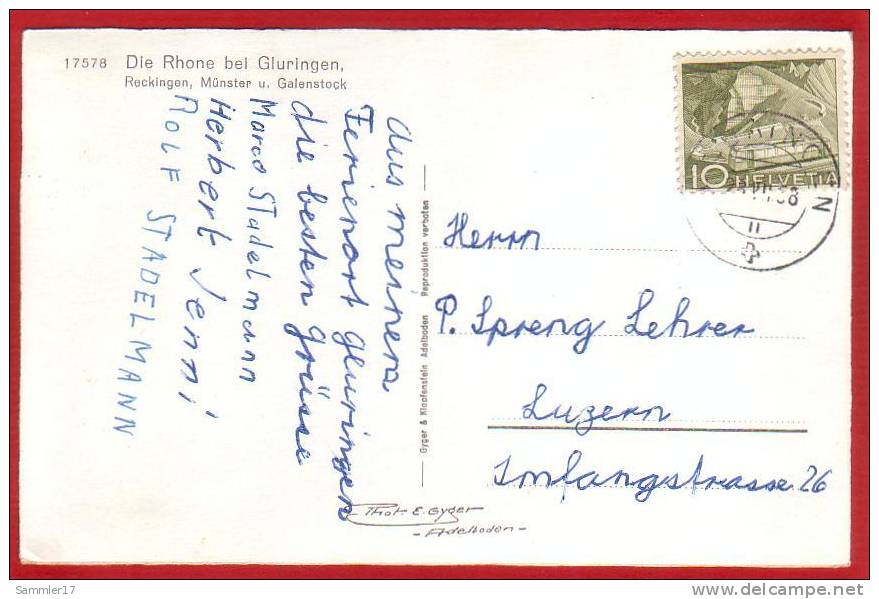 17578 Die Rhone bei Gluringen,
Reckingen, Münster u. Galenstock
Aus meinem
Ferienort Gluringen
die besten Grüsse
Marco Stadelmann
Herbert Jenni
ROLF STADELMANN
Gyger & Klopfenstein Adelboden Reproduktion verboten
Phot. E. Gyger
- Adelboden -
10 HELVETIA
Herrn
P. Spreng Lehrer
Luzern
Imfangstrasse 26
Sammler17
delcampe.net